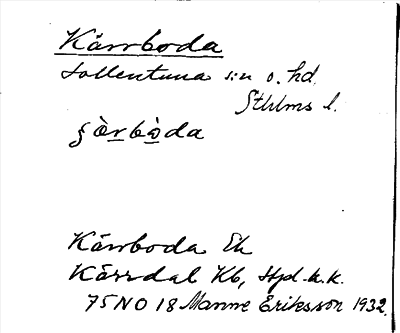 Kärrboda
Sollentuna sn o. hd.
Sthlms l.
çὰrbὰda
Kärrboda Ek
Kärrdal Kb, Hpd.k.k.
75 NO 18 Manne Eriksson 1932.